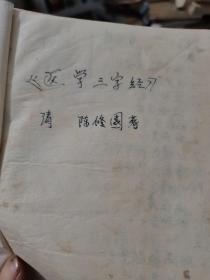 《医学三字经》
陈修園著